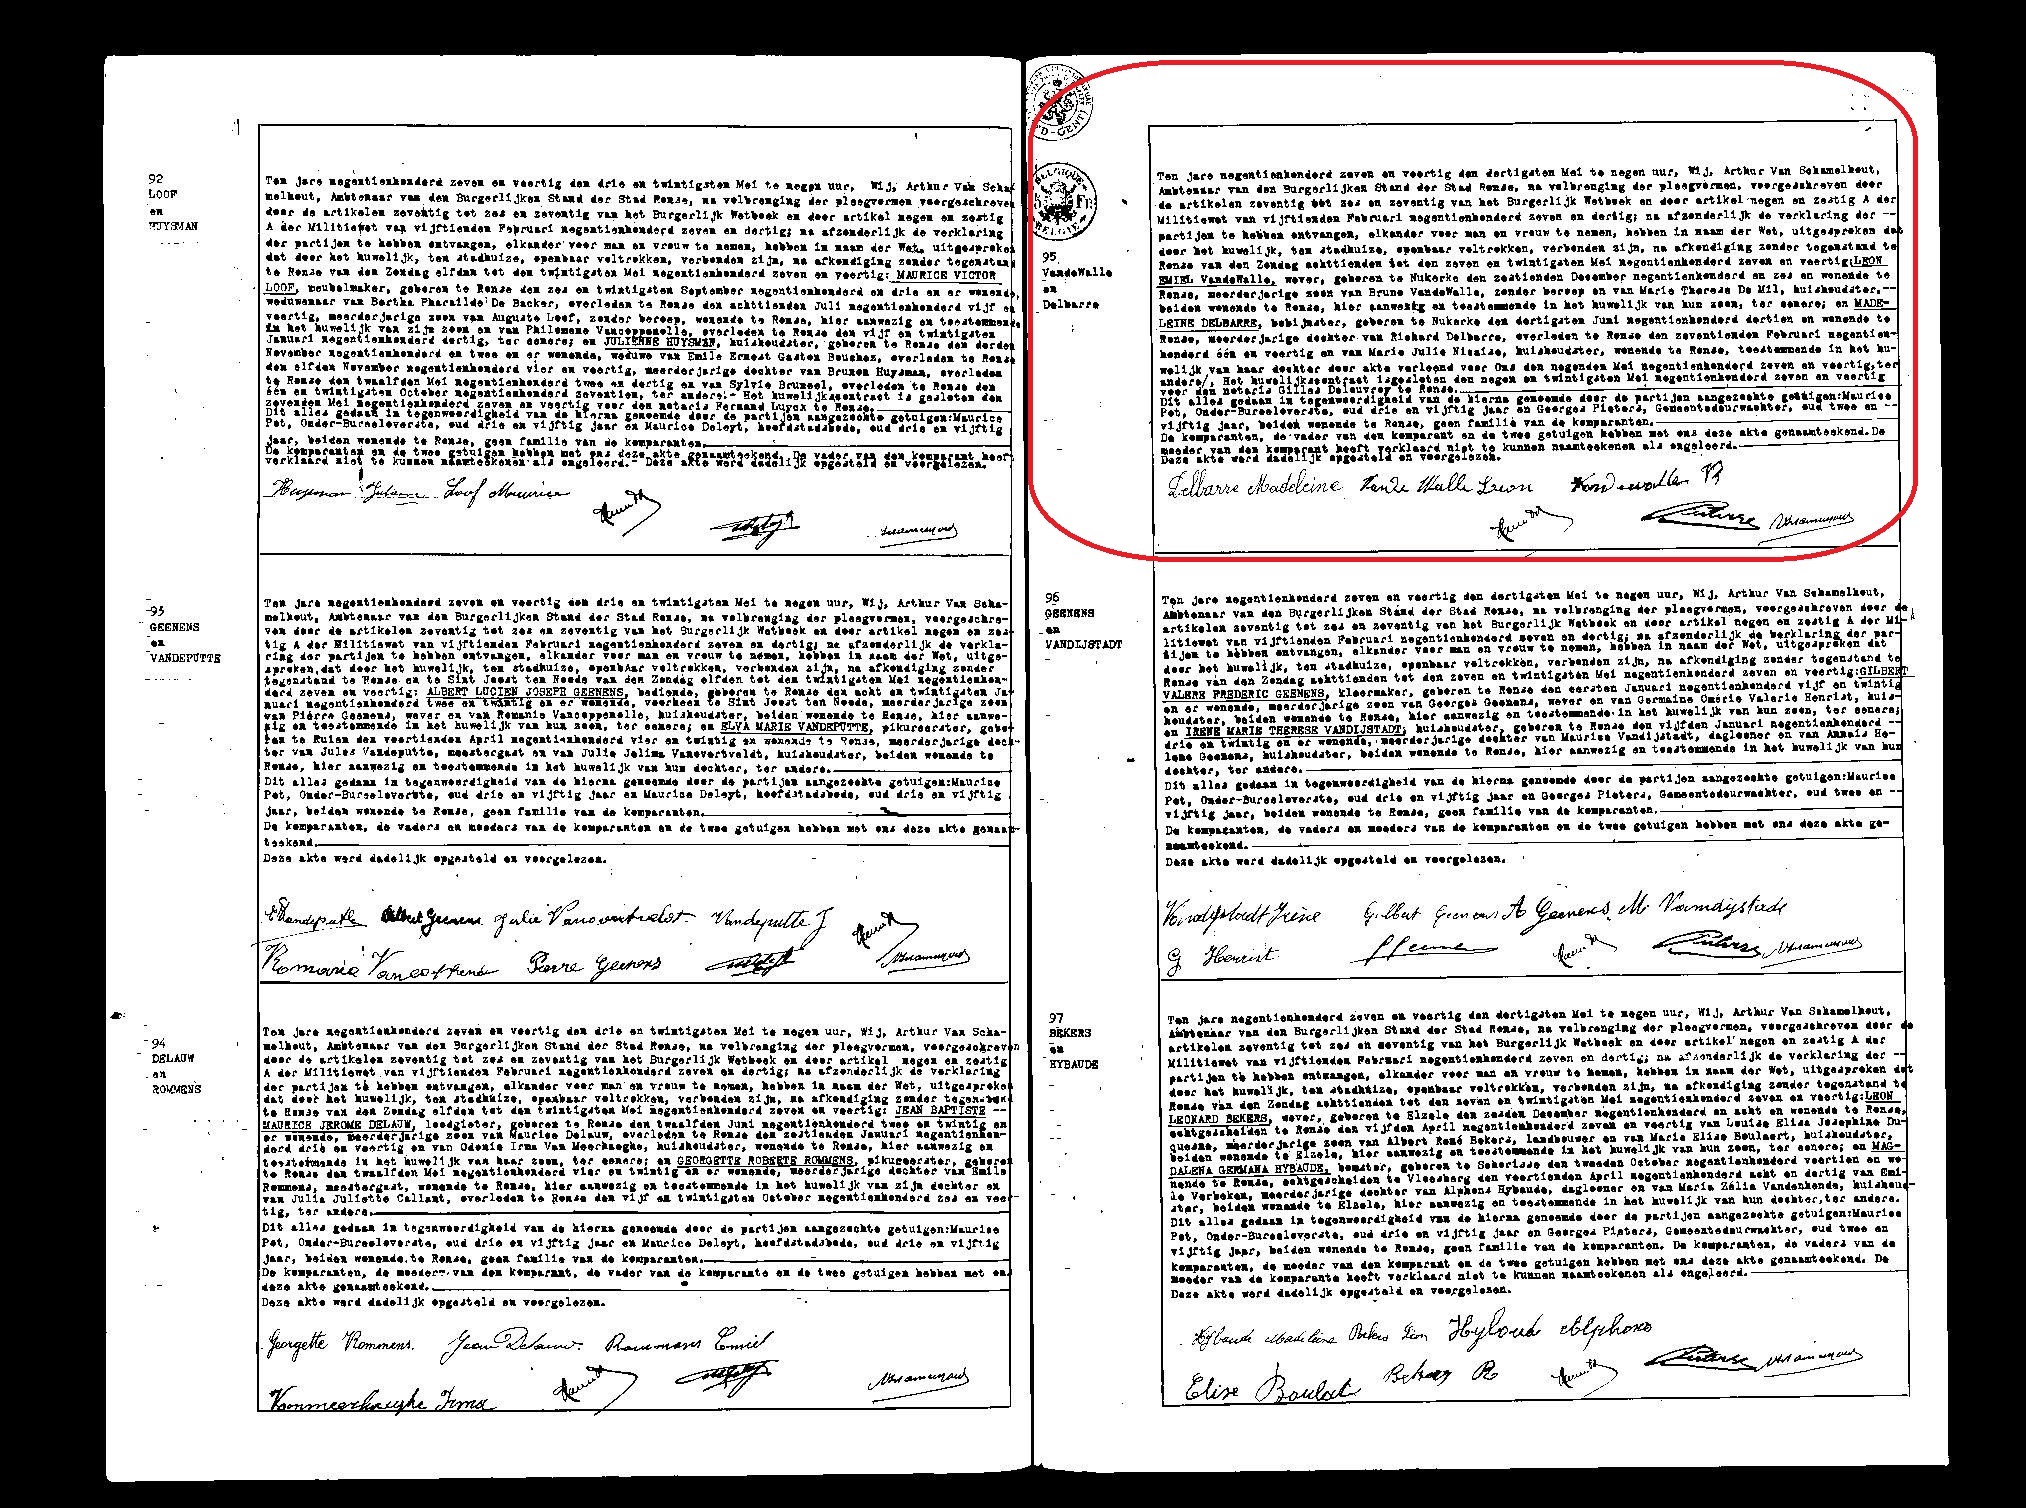 92
LOOF
en
HUYSMAN
Ten jare negentienhonderd zeven en veertig den drie en twintigsten Mei te negen uur, Wij, Arthur Van Scha-
melhout, Ambtenaar van den Burgerlijken Stand der Stad Ronse, na volbrenging der pleegvormen voorgeschreven
door de artikelen zeventig tot zes en zeventig van het Burgerlijk Wetboek en door artikel negen en zestig
A der Militiewet van vijftienden Februari negentienhonderd zeven en dertig; na afzonderlijk de verklaring
der partijen te hebben ontvangen, elkander voor man en vrouw te nemen, hebben in naam der Wet, uitgesproken
dat door het huwelijk, ten stadhuize, openbaar voltrokken, verbonden zijn, na afkondiging zonder tegenstand
te Ronse van den Zondag elfden tot den twintigsten Mei negentienhonderd zeven en veertig: MAURICE VICTOR
LOOF, meubelmaker, geboren te Ronse den zes en twintigsten September negentienhonderd en drie en er wonende,
weduwenaar van Bertha Pharaïlde De Backer, overleden te Ronse den achttienden Juli negentienhonderd vijf en
veertig, meerderjarige zoon van Auguste Loof, zonder beroep, wonende te Ronse, hier aanwezig en toestemmende
in het huwelijk van zijn zoon en van Philomene Vancoppenolle, overleden te Ronse den vijf en twintigsten
Januari negentienhonderd dertig, ter eenere; en JULIENNE HUYSMAN, huishoudster, geboren te Ronse den derden
November negentienhonderd en twee en er wonende, weduwe van Emile Ernest Gaston Bouchez, overleden te Ronse
den elfden November negentienhonderd vier en veertig, meerderjarige dochter van Brunon Huysman, overleden
te Ronse den twaalfden Mei negentienhonderd twee en dertig en van Sylvie Bruneel, overleden te Ronse den
één en twintigsten October negentienhonderd zeventien, ter andere.- Het huwelijkscontract is gesloten den
zevenden Mei negentienhonderd zeven en veertig voor den notaris Fernand Luycx te Ronse.
Dit alles gedaan in tegenwoordigheid van de hierna genoemde door de partijen aangezochte getuigen:Maurice
Pot, Onder-Bureeloverste, oud drie en vijftig jaar en Maurice Deleyt, hoofdstadsbode, oud drie en vijftig
jaar, beiden wonende te Ronse, geen familie van de komparanten.
De komparanten en de twee getuigen hebben met ons deze akte genaamteekend. De vader van den komparant heeft
verklaard niet te kunnen naamteekenen als ongeleerd.- Deze akte werd dadelijk opgesteld en voorgelezen.
Huysman Juliene Loof Maurice
93
GEENENS
en
VANDEPUTTE
Ten jare negentienhonderd zeven en veertig den drie en twintigsten Mei te negen uur, Wij, Arthur Van Scha-
melhout, Ambtenaar van den Burgerlijken Stand der Stad Ronse, na volbrenging der pleegvormen, voorgeschre-
ven door de artikelen zeventig tot zes en zeventig van het Burgerlijk Wetboek en door artikel negen en zes-
tig A der Militiewet van vijftienden Februari negentienhonderd zeven en dertig; na afzonderlijk de verkla-
ring der partijen te hebben ontvangen, elkander voor man en vrouw te nemen, hebben in naam der Wet, uitge-
sproken,dat door het huwelijk, ten stadhuize, openbaar voltrokken, verbonden zijn, na afkondiging zonder
tegenstand te Ronse en te Sint Joost ten Noode van den Zondag elfden tot den twintigsten Mei negentienhon-
derd zeven en veertig: ALBERT LUCIEN JOSEPH GEENENS, bediende, geboren te Ronse den acht en twintigsten Ja-
nuari negentienhonderd twee en twintig en er wonende, voorheen te Sint Joost ten Noode, meerderjarige zoon
van Pièrre Geenens, wever en van Romanie Vancoppenolle, huishoudster, beiden wonende te Ronse, hier aanwe-
zig en toestemmende in het huwelijk van hun zoon, ter eenere; en ELVA MARIE VANDEPUTTE, pikureerster, gebo-
ren te Ruien den veertienden April negentienhonderd vier en twintig en wonende te Ronse, meerderjarige doch-
ter van Jules Vandeputte, meestergast en van Julie Jelima Vanovertveldt, huishoudster, beiden wonende te
Ronse, hier aanwezig en toestemmende in het huwelijk van hun dochter, ter andere.
Dit alles gedaan in tegenwoordigheid van de hierna genoemde door de partijen aangezochte getuigen:Maurice
Pot, Onder-Bureeloverste, oud drie en vijftig jaar en Maurice Deleyt, hoofdstadsbode, oud drie en vijftig
jaar, beiden wonende te Ronse, geen familie van de komparanten.
De komparanten, de vaders en moeders van de komparanten en de twee getuigen hebben met ons deze akte genaam-
teekend.
Deze akte werd dadelijk opgesteld en voorgelezen.
E Vandeputte Albert Geenens Julie Vanovertveldt Vandeputte J
Romanie Pierre Geenens
94
DELAUW
en
ROMMENS
Ten jare negentienhonderd zeven en veertig den drie en twintigsten Mei te negen uur, Wij, Arthur Van Scha-
melhout, Ambtenaar van den Burgerlijken Stand der Stad Ronse, na volbrenging der pleegvormen, voorgeschreven
door de artikelen zeventig tot zes en zeventig van het Burgerlijk Wetboek en door artikel negen en zestig
A der Militiewet van vijftienden Februari negentienhonderd zeven en dertig; na afzonderlijk de verklaring
der partijen te hebben ontvangen, elkander voor man en vrouw te nemen, hebben in naam der Wet, uitgesproken
dat door het huwelijk, ten stadhuize, openbaar voltrokken, verbonden zijn, na afkondiging zonder tegenstand
te Ronse van den Zondag elfden tot den twintigsten Mei negentienhonderd zeven en veertig: JEAN BAPTISTE --
MAURICE JEROME DELAUW, loodgieter, geboren te Ronse den twaalfden Juni negentienhonderd twee en twintig en
er wonende, meerderjarige zoon van Maurice Delauw, overleden te Ronse den zestienden Januari negentienhon-
derd drie en veertig en van Odonie Irma Van Meerhaeghe, huishoudster, wonende te Ronse, hier aanwezig en
toestemmende in het huwelijk van haar zoon, ter eenere; en GEORGETTE ROBERTE ROMMENS, pikureerster, geboren
te Ronse den twaalfden Mei negentienhonderd vier en twintig en er wonende, meerderjarige dochter van Emile
Rommens, meestergast, wonende te Ronse, hier aanwezig en toestemmende in het huwelijk van zijn dochter en
van Julia Juliette Callant, overleden te Ronse den vijf en twintigsten October negentienhonderd zes en veer-
tig, ter andere.
Dit alles gedaan in tegenwoordigheid van de hierna genoemde door de partijen aangezochte getuigen:Maurice
Pot, Onder-Bureeloverste, oud drie en vijftig jaar en Maurice Deleyt, hoofdstadsbode, oud drie en vijftig
jaar, beiden wonende te Ronse, geen familie van de komparanten.
De komparanten, de moeder van den komparant, de vader van de komparante en de twee getuigen hebben met ons
deze akte genaamteekend.
Deze akte werd dadelijk opgesteld en voorgelezen.
Georgette Rommens. Jean Delauw. Rommens Emiel
Vanmeerhaeghe Irma
BELGIQUE
Fr
BELGIË
95
VandeWalle
en
Delbarre
Ten jare negentienhonderd zeven en veertig den dertigsten Mei te negen uur, Wij, Arthur Van Schamelhout,
Ambtenaar van den Burgerlijken Stand der Stad Ronse, na volbrenging der pleegvormen, voorgeschreven door
de artikelen zeventig tot zes en zeventig van het Burgerlijk Wetboek en door artikel negen en zestig A der
Militiewet van vijftienden Februari negentienhonderd zeven en dertig; na afzonderlijk de verklaring der --
partijen te hebben ontvangen, elkander voor man en vrouw te nemen, hebben in naam der Wet, uitgesproken dat
door het huwelijk, ten stadhuize, openbaar voltrokken, verbonden zijn, na afkondiging zonder tegenstand te
Ronse van den Zondag achttienden tot den zeven en twintigsten Mei negentienhonderd zeven en veertig:LEON
EMIEL VandeWalle, wever, geboren te Nukerke den zestienden December negentienhonderd en zes en wonende te
Ronse, meerderjarige zoon van Bruno VandeWalle, zonder beroep en van Marie Therese De Mil, huishoudster,--
beiden wonende te Ronse, hier aanwezig en toestemmende in het huwelijk van hun zoon, ter eenere; en MADE-
LEINE DELBARRE, bobijnster, geboren te Nukerke den dertigsten Juni negentienhonderd dertien en wonende te
Ronse, meerderjarige dochter van Richard Delbarre, overleden te Ronse den zeventienden Februari negentien-
honderd één en veertig en van Marie Julie Nicaise, huishoudster, wonende te Ronse, toestemmende in het hu-
welijk van haar dochter door akte verleend voor Ons den negenden Mei negentienhonderd zeven en veertig,ter
andere/. Het huwelijkscontract isgesloten den negen en twintigsten Mei negentienhonderd zeven en veertig
voor den notaris Gilles Delouvroy te Ronse.
Dit alles gedaan in tegenwoordigheid van de hierna genoemde door de partijen aangezochte getuigen:Maurice
Pot, Onder-Bureeloverste, oud drie en vijftig jaar en Georges Pieters, Gemeentedeurwachter, oud twee en --
vijftig jaar, beiden wonende te Ronse, geen familie van de komparanten.
De komparanten, de vader van den komparant en de twee getuigen hebben met ons deze akte genaamteekend.De
moeder van den komparant heeft verklaard niet te kunnen naamteekenen als ongeleerd.
Deze akte werd dadelijk opgesteld en voorgelezen.
Delbarre Madeleine Van de Walle Leon Vandewalle B
96
GEENENS
en
VANDIJSTADT
Ten jare negentienhonderd zeven en veertig den dertigsten Mei te negen uur, Wij, Arthur Van Schamelhout,
Ambtenaar van den Burgerlijken Stand der Stad Ronse, na volbrenging der pleegvormen, voorgeschreven door de
artikelen zeventig tot zes en zeventig van het Burgerlijk Wetboek en door artikel negen en zestig A der Mi-
litiewet van vijftienden Februari negentienhonderd zeven en dertig; na afzonderlijk de verklaring der par-
tijen te hebben ontvangen, elkander voor man en vrouw te nemen, hebben in naam der Wet, uitgesproken dat
door het huwelijk, ten stadhuize, openbaar voltrokken, verbonden zijn, na afkondiging zonder tegenstand te
Ronse van den Zondag achttienden tot den zeven en twintigsten Mei negentienhonderd zeven en veertig:GILBERT
VALERE FREDERIC GEENENS, kleermaker, geboren te Ronse den eersten Januari negentienhonderd vijf en twintig
en er wonende, meerderjarige zoon van Georges Geenens, wever en van Germaine Omérie Valerie Henrist, huis-
houdster, beiden wonende te Ronse, hier aanwezig en toestemmende in het huwelijk van hun zoon, ter eenere;
en IRENE MARIE THERESE VANDIJSTADT, huishoudster, geboren te Ronse den vijfden Januari negentienhonderd --
drie en twintig en er wonende, meerderjarige dochter van Maurice Vandijstadt, daglooner en van Annaïs He-
lene Geenens, huishoudster, beiden wonende te Ronse, hier aanwezig en toestemmende in het huwelijk van hun
dochter, ter andere.
Dit alles gedaan in tegenwoordigheid van de hierna genoemde door de partijen aangezochte getuigen:Maurice
Pot, Onder-Bureeloverste, oud drie en vijftig jaar en Georges Pieters, Gemeentedeurwachter, oud twee en --
vijftig jaar, beiden wonende te Ronse, geen familie van de komparanten.
De komparanten, de vaders en moeders van de komparanten en de twee getuigen hebben met ons deze akte ge-
naamteekend.
Deze akte werd dadelijk opgesteld en voorgelezen.
Vandijstadt Irène Gilbert Geenens A Geenens M. Vandijstadt
G Henrist
97
BEKERS
en
HYBAUDE
Ten jare negentienhonderd zeven en veertig den dertigsten Mei te negen uur, Wij, Arthur Van Schamelhout,
Ambtenaar van den Burgerlijken Stand der Stad Ronse, na volbrenging der pleegvormen, voorgeschreven door de
artikelen zeventig tot zes en zeventig van het Burgerlijk Wetboek en door artikel negen en zestig A der
Militiewet van vijftienden Februari negentienhonderd zeven en dertig; na afzonderlijk de verklaring der --
partijen te hebben ontvangen, elkander voor man en vrouw te nemen, hebben in naam der Wet, uitgesproken dat
door het huwelijk, ten stadhuize, openbaar voltrokken, verbonden zijn, na afkondiging zonder tegenstand te
Ronse van den Zondag achttienden tot den zeven en twintigsten Mei negentienhonderd zeven en veertig:LEON
LEONARD BEKERS, wever, geboren te Elzele den zesden December negentienhonderd en acht en wonende te Ronse,
echtgescheiden te Ronse den vijfden April negentienhonderd zeven en veertig van Louise Elisa Josephine Du-
quesne, meerderjarige zoon van Albert René Bekers, landbouwer en van Maria Elise Boulaert, huishoudster,
beiden wonende te Elzele, hier aanwezig en toestemmende in het huwelijk van hun zoon, ter eenere; en MAG-
DALENA GERMANA HYBAUDE, bomster, geboren te Schorisse den tweeden October negentienhonderd veertien en wo-
nende te Ronse, echtgescheiden te Vloesberg den veertienden April negentienhonderd acht en dertig van Emi-
le Verbeken, meerderjarige dochter van Alphons Hybaude, daglooner en van Maria Zélia Vandenhende, huishoud-
ster, beiden wonende te Elzele, hier aanwezig en toestemmende in het huwelijk van hun dochter,ter andere.
Dit alles gedaan in tegenwoordigheid van de hierna genoemde door de partijen aangezochte getuigen:Maurice
Pot, Onder-Bureeloverste, oud drie en vijftig jaar en Georges Pieters, Gemeentedeurwachter, oud twee en
vijftig jaar, beiden wonende te Ronse, geen familie van de komparanten. De komparanten, de vaders van de
komparanten, de moeder van den komparant en de twee getuigen hebben met ons deze akte genaamteekend. De
moeder van de komparante heeft verklaard niet te kunnen naamteekenen als ongeleerd.
Deze akte werd dadelijk opgesteld en voorgelezen.
Hybaude Madeleine Bekers Leon Hyboude Alphons
Elise Boulat Bekers R